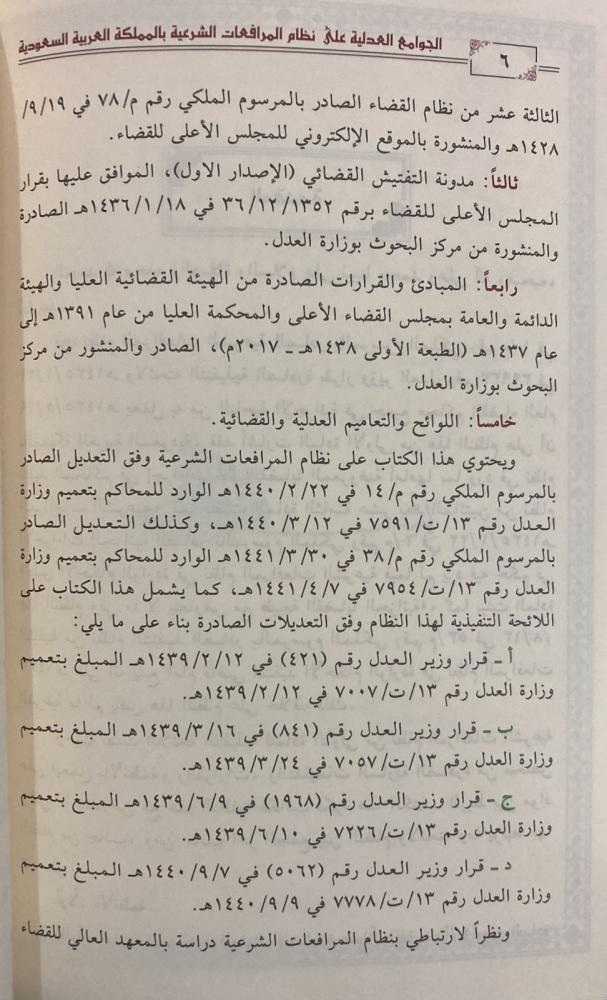 الجوامع العدلية على نظام المرافعات الشرعية بالمملكة العربية السعودية
٦
الثالثة عشر من نظام القضاء الصادر بالمرسوم الملكي رقم م/٧٨ في ٩/١٩/
١٤٢٨هـ والمنشورة بالموقع الإلكتروني للمجلس الأعلى للقضاء.
ثالثاً: مدونة التفتيش القضائي (الإصدار الاول)، الموافق عليها بقرار
المجلس الأعلى للقضاء برقم ٣٦/١٢/١٣٥٢ في ١٤٣٦/١/١٨هـ الصادرة
والمنشورة من مركز البحوث بوزارة العدل.
رابعاً: المبادئ والقرارات الصادرة من الهيئة القضائية العليا والهيئة
الدائمة والعامة بمجلس القضاء الأعلى والمحكمة العليا من عام ١٣٩١هـ إلى
عام ١٤٣٧هـ (الطبعة الأولى ١٤٣٨هـ ـ ٢٠١٧م)، الصادر والمنشور من مركز
البحوث بوزارة العدل.
خامساً: اللوائح والتعاميم العدلية والقضائية.
ويحتوي هذا الكتاب على نظام المرافعات الشرعية وفق التعديل الصادر
بالمرسوم الملكي رقم م/١٤ في ١٤٤٠/٢/٢٢هـ الوارد للمحاكم بتعميم وزارة
العدل رقم ١٣/ت/٧٥٩١ في ١٤٤٠/٣/١٢هـ، وكذلك التعديل الصادر
بالمرسوم الملكي رقم م/٣٨ في ١٤٤١/٣/٣٠هـ الوارد للمحاكم بتعميم وزارة
العدل رقم ١٣/ت/٧٩٥٤ في ١٤٤١/٤/٧هـ، كما يشمل هذا الكتاب على
اللائحة التنفيذية لهذا النظام وفق التعديلات الصادرة بناء على ما يلي:
أ ـ قرار وزير العدل رقم (٤٢١) في ١٤٣٩/٢/١٢هـ المبلغ بتعميم
وزارة العدل رقم ١٣/ت/٧٠٠٧ في ١٤٣٩/٢/١٢هـ.
ب ـ قرار وزير العدل رقم (٨٤١) في ١٤٣٩/٣/١٦هـ المبلغ بتعميم
وزارة العدل رقم ١٣/ت/٧٠٥٧ في ١٤٣٩/٣/٢٤هـ.
ج ـ قرار وزير العدل رقم (١٩٦٨) في ١٤٣٩/٦/٩هـ المبلغ بتعميم
وزارة العدل رقم ١٣/ت/٧٢٢٦ في ١٤٣٩/٦/١٠هـ.
د ـ قرار وزير العدل رقم (٥٠٦٢) في ١٤٤٠/٩/٧هـ المبلغ بتعميم
وزارة العدل رقم ١٣/ت/٧٧٧٨ في ١٤٤٠/٩/٩هـ.
ونظراً لارتباطي بنظام المرافعات الشرعية دراسة بالمعهد العالي للقضاء